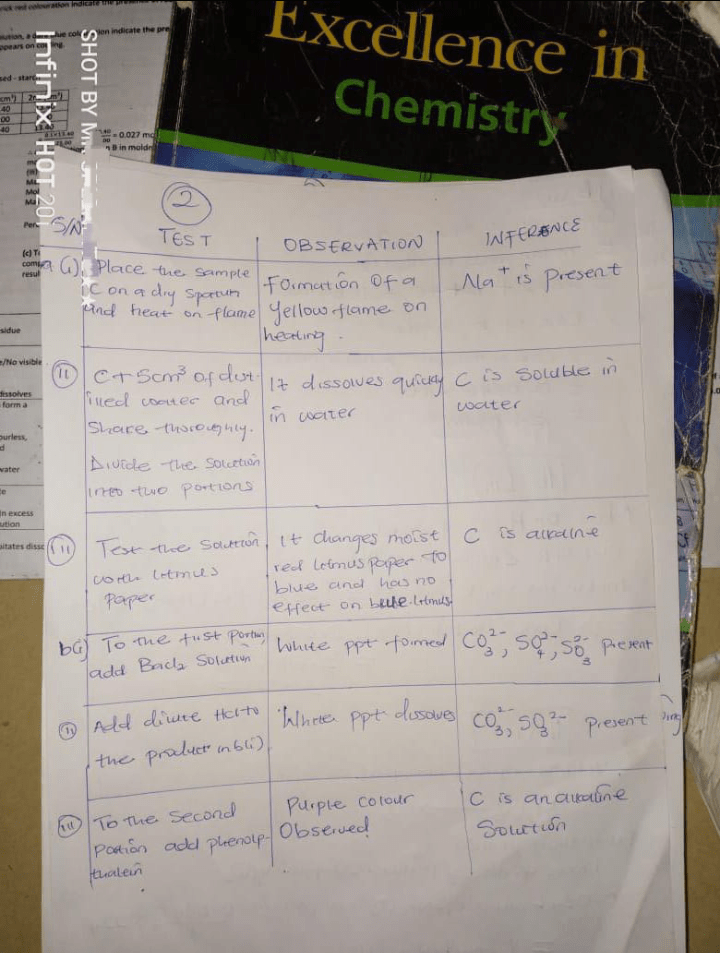 Excellence in
Chemistry
SHOT BY M
Infinix HOT 20i
= 0.027 mo
2
S/N
TEST
OBSERVATION
INFERENCE
a (i) Place the sample
C on a dry Spatum
and heat on flame
Formation Of a
Yellow flame on
heating.
Na⁺ is present
(ii) C + 5cm³ of dist
illed water and
Shake thoroughly.
Divide the solution
into two portions
It dissolves quickly
in water
C is Soluble in
water
(iii) Test the Solution
with litmus
Paper
It changes moist
red litmus paper to
blue and has no
effect on blue litmus
C is alkaline
b(i) To the first Portion
add Bacl₂ Solution
White ppt formed
CO₃²⁻, SO₄²⁻, SO₃²⁻ Present
(ii) Add dilute Hcl to
the product in b(i)
White ppt dissolves
CO₃²⁻, SO₃²⁻ Present
(iii) To the second
Portion add phenolp-
thalein
Purple colour
Observed
C is an alkaline
Solution